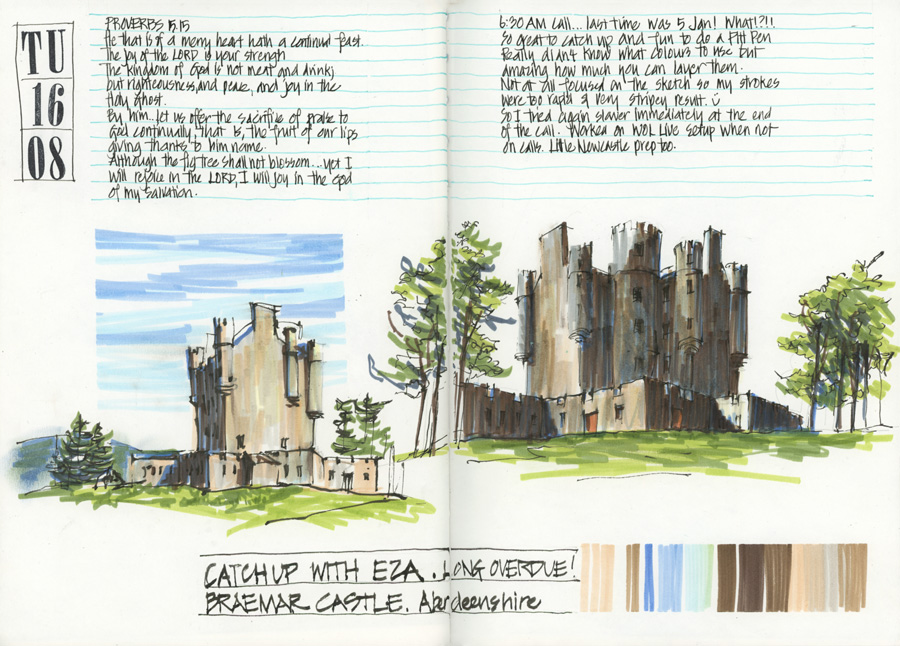 TU
16
08
PROVERBS 15.15
He that is of a merry heart hath a continual feast.
The joy of the LORD is your strength
The kingdom of God is not meat and drink;
but righteousness, and peace, and joy in the
Holy Ghost.
By him...let us offer the sacrifice of praise to
God continually, that is, the fruit of our lips
giving thanks to him name.
Although the fig tree shall not blossom...yet I
will rejoice in the LORD, I will joy in the God
of my salvation.
6:30 AM call... last time was 5 Jan! What!?!!
So great to catch up and fun to do a Pitt Pen
Really didn't know what colours to use but
amazing how much you can layer them.
Not at all focused on the sketch so my strokes
were too rapid & very stripey result.
So I tried again slower immediately at the end
of the call. Worked on WOL Live setup when not
on calls. Little Newcastle prep too.
CATCHUP WITH EZA. LONG OVERDUE!
BRAEMAR CASTLE. Aberdeenshire